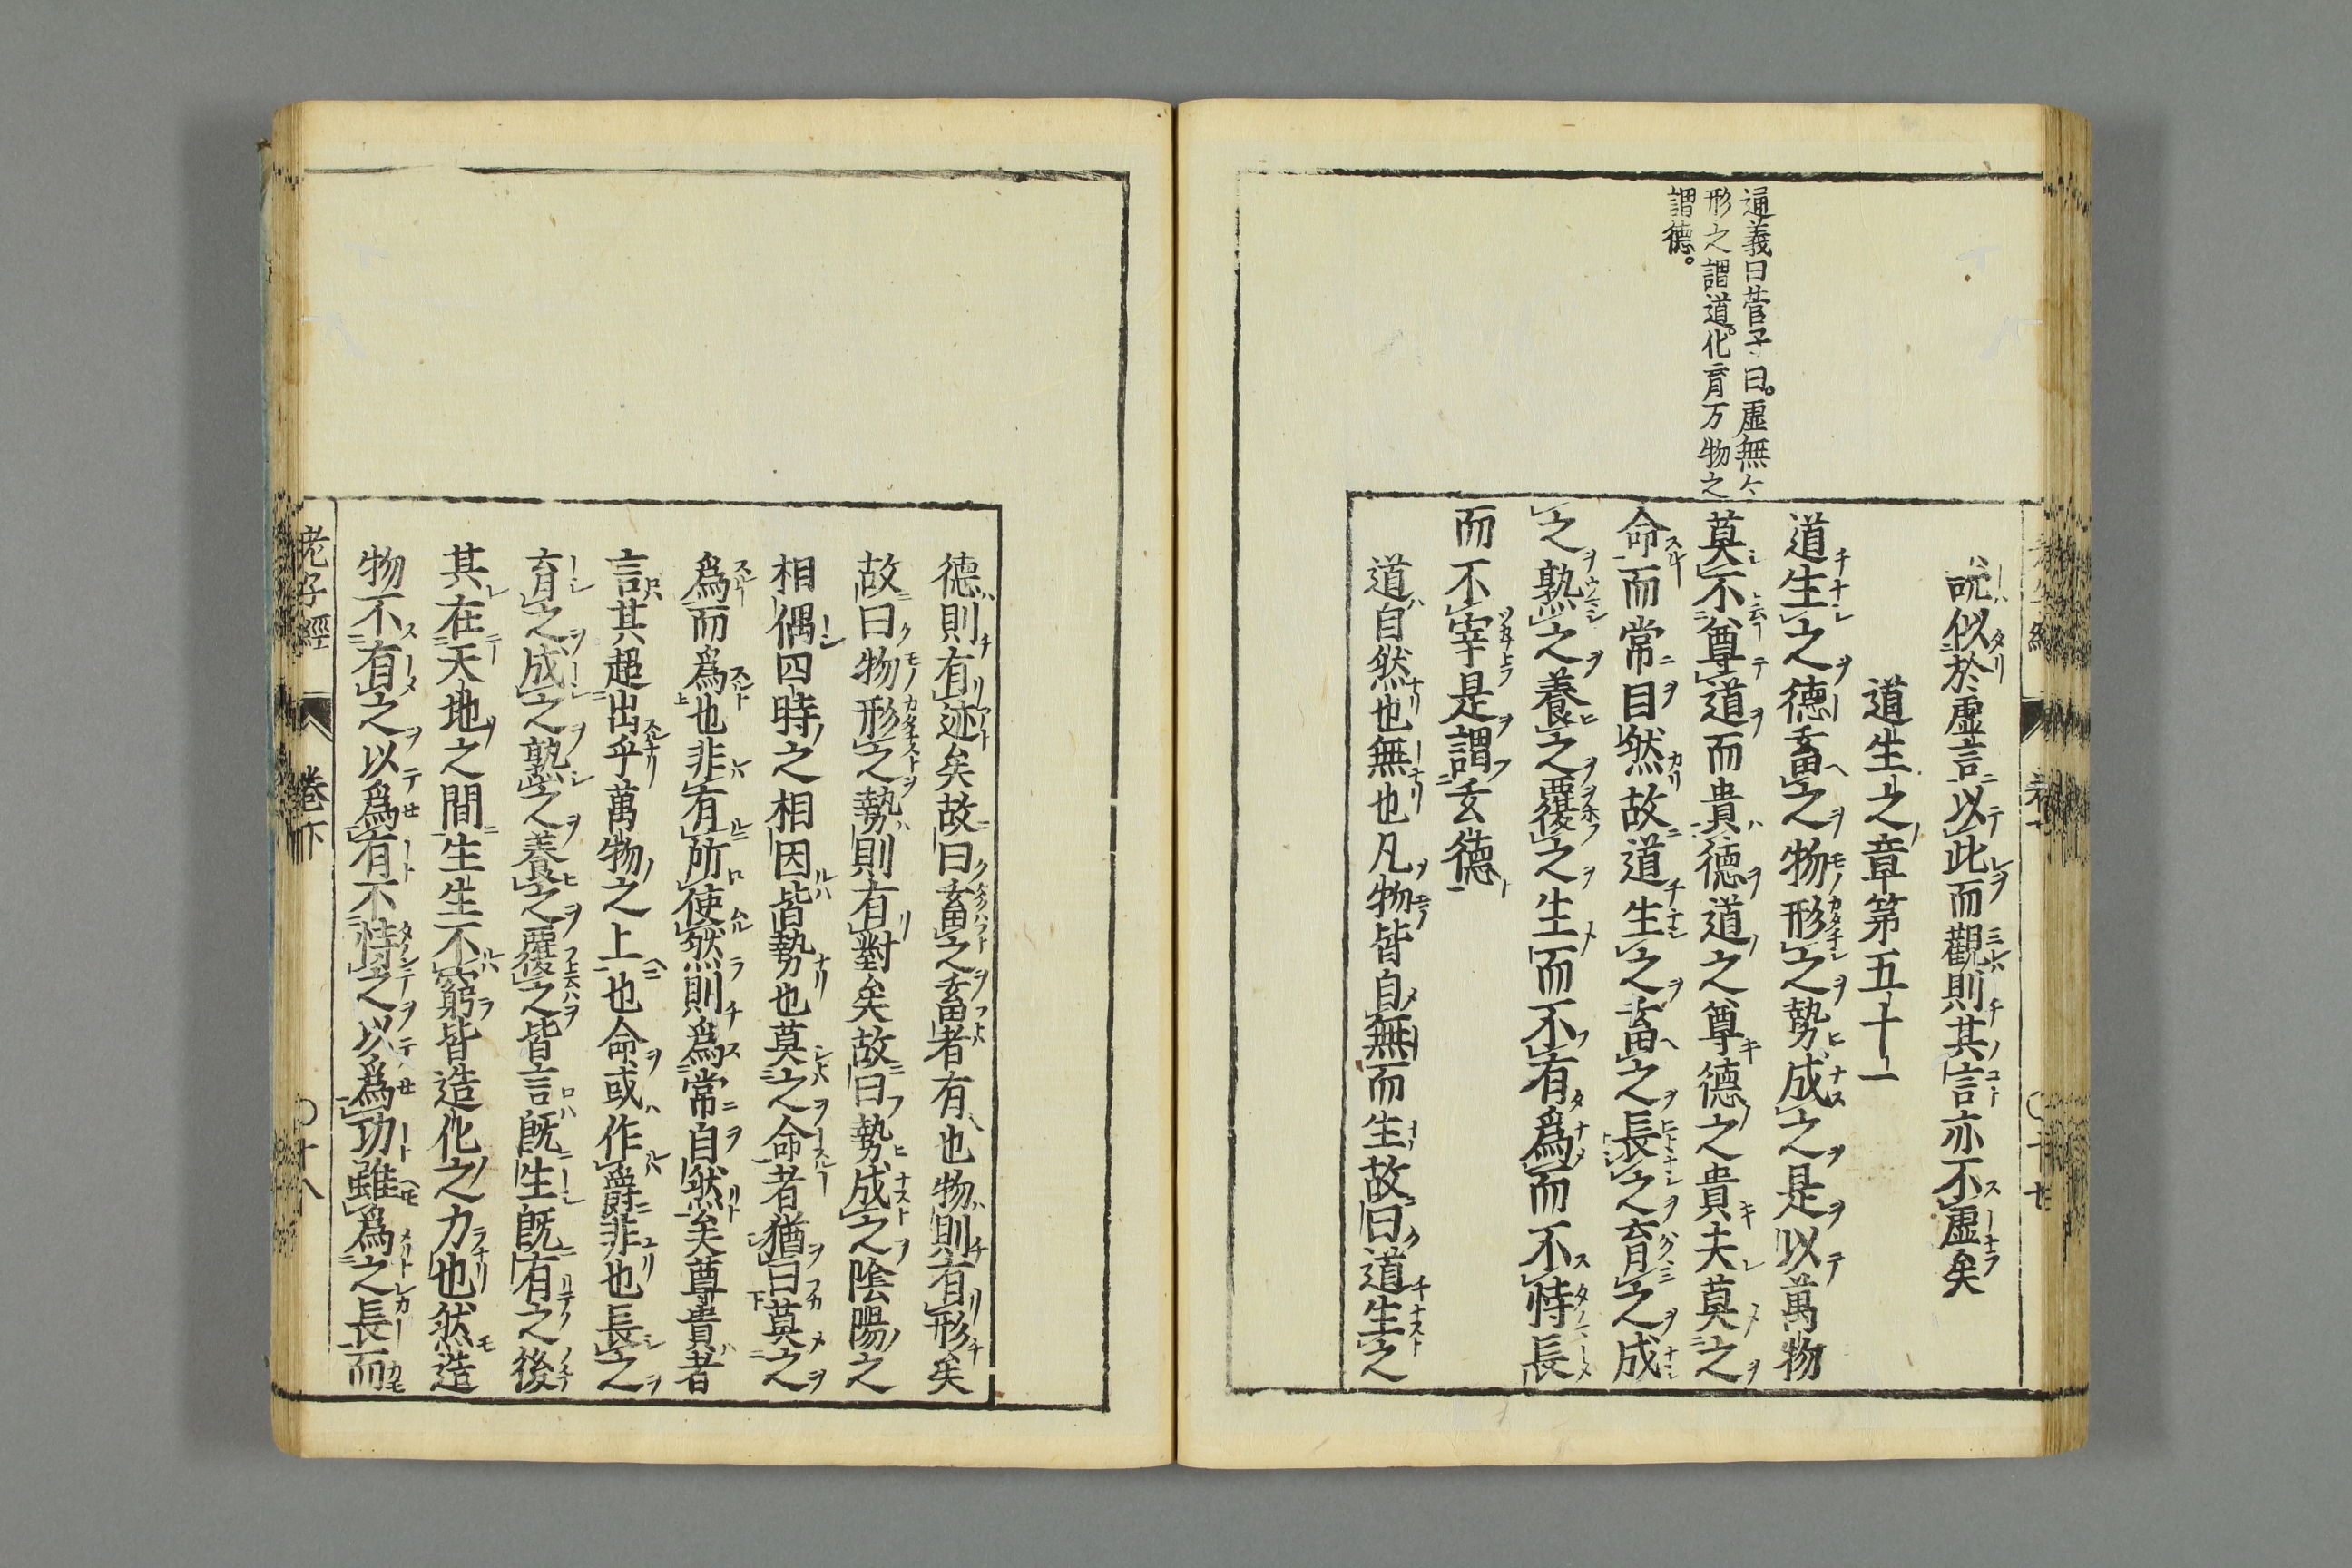 通義曰菅子曰。虛無々
形之謂道。化育万物之
謂德。
説似於虛言以此而觀則其言亦不虛矣
道生之章第五十一
道生之德畜之物形之勢成之是以萬物
莫不尊道而貴德道之尊德之貴夫莫之
命而常自然故道生之畜之長之育之成
之熟之養之覆之生而不有爲而不恃長
而不宰是謂玄德
道自然也無也凡物皆自無而生故曰道生之
德則有迹矣故曰畜之畜者有也物則有形矣
故曰物形之勢則有對矣故曰勢成之陰陽之
相偶四時之相因皆勢也莫之命者猶曰莫之
爲而爲也非有所使然則爲常自然矣尊貴者
言其超出乎萬物之上也命或作爵非也長之
育之成之熟之養之覆之皆言既生既有之後
其在天地之間生生不窮皆造化之力也然造
物不有之以爲有不恃之以爲功雖爲之長而
老子經 卷下 〇十八